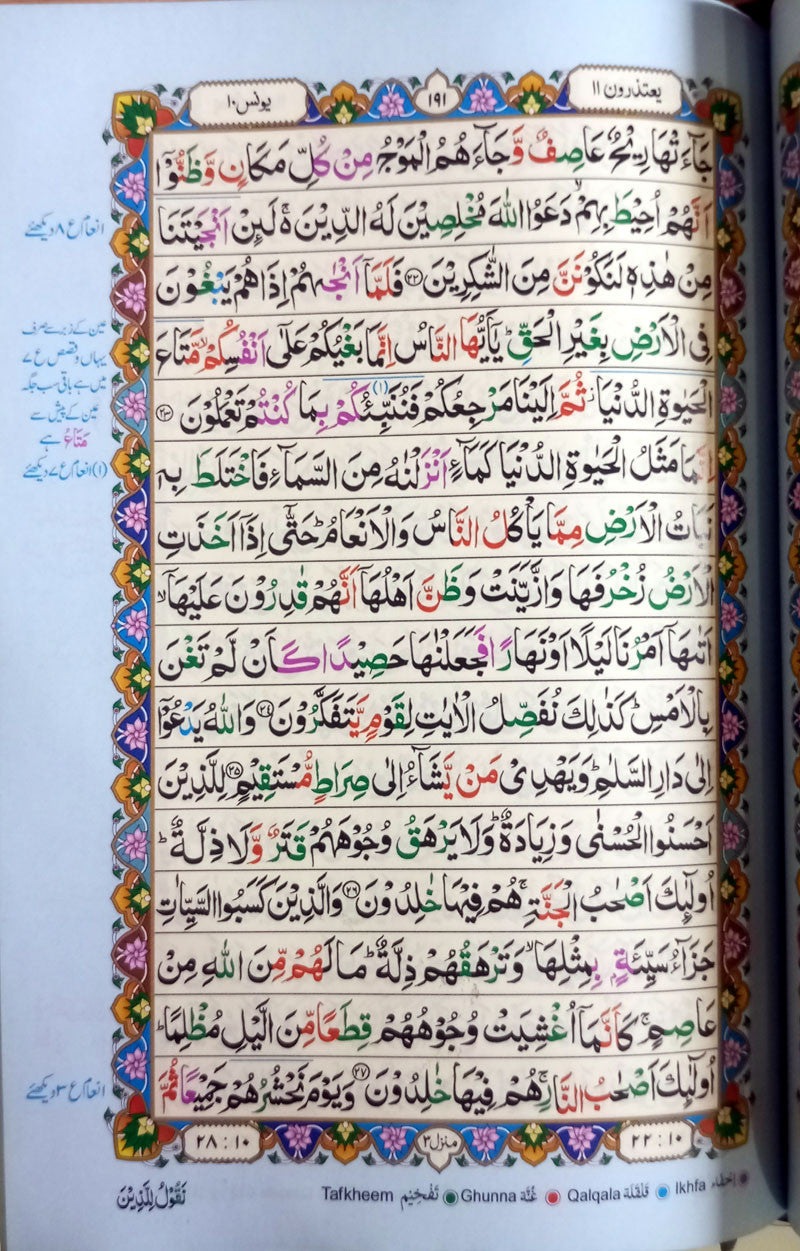 یعتذرون ۱۱
۱۹۱
یونس ۱۰
جَآءَتْهَا رِیْحٌ عَاصِفٌ وَّجَآءَهُمُ الْمَوْجُ مِنْ كُلِّ مَكَانٍ وَّظَنُّوْۤا
اَنَّهُمْ اُحِیْطَ بِهِمْ ۙ دَعَوُا اللّٰهَ مُخْلِصِیْنَ لَهُ الدِّیْنَ ۚ۬ لَىِٕنْ اَنْجَیْتَنَا
مِنْ هٰذِهٖ لَنَكُوْنَنَّ مِنَ الشّٰكِرِیْنَ ۝۲۲ فَلَمَّاۤ اَنْجٰىهُمْ اِذَا هُمْ یَبْغُوْنَ
فِی الْاَرْضِ بِغَیْرِ الْحَقِّ ؕ یٰۤاَیُّهَا النَّاسُ اِنَّمَا بَغْیُكُمْ عَلٰۤی اَنْفُسِكُمْ ۙ مَّتَاعَ
الْحَیٰوةِ الدُّنْیَا ؗ ثُمَّ اِلَیْنَا مَرْجِعُكُمْ فَنُنَبِّئُكُمْ (۱) بِمَا كُنْتُمْ تَعْمَلُوْنَ ۝۲۳
اِنَّمَا مَثَلُ الْحَیٰوةِ الدُّنْیَا كَمَآءٍ اَنْزَلْنٰهُ مِنَ السَّمَآءِ فَاخْتَلَطَ بِهٖ
نَبَاتُ الْاَرْضِ مِمَّا یَاْكُلُ النَّاسُ وَالْاَنْعَامُ ؕ حَتّٰۤی اِذَاۤ اَخَذَتِ
الْاَرْضُ زُخْرُفَهَا وَازَّیَّنَتْ وَظَنَّ اَهْلُهَاۤ اَنَّهُمْ قٰدِرُوْنَ عَلَیْهَاۤ ۙ
اَتٰىهَاۤ اَمْرُنَا لَیْلًا اَوْ نَهَارًا فَجَعَلْنٰهَا حَصِیْدًا كَاَنْ لَّمْ تَغْنَ
بِالْاَمْسِ ؕ كَذٰلِكَ نُفَصِّلُ الْاٰیٰتِ لِقَوْمٍ یَّتَفَكَّرُوْنَ ۝۲۴ وَاللّٰهُ یَدْعُوْۤا
اِلٰی دَارِ السَّلٰمِ ؕ وَیَهْدِیْ مَنْ یَّشَآءُ اِلٰی صِرَاطٍ مُّسْتَقِیْمٍ ۝۲۵ لِلَّذِیْنَ
اَحْسَنُوا الْحُسْنٰی وَزِیَادَةٌ ؕ وَلَا یَرْهَقُ وُجُوْهَهُمْ قَتَرٌ وَّلَا ذِلَّةٌ ؕ
اُولٰٓىِٕكَ اَصْحٰبُ الْجَنَّةِ ۚ هُمْ فِیْهَا خٰلِدُوْنَ ۝۲۶ وَالَّذِیْنَ كَسَبُوا السَّیِّاٰتِ
جَزَآءُ سَیِّئَةٍۭ بِمِثْلِهَا ۙ وَتَرْهَقُهُمْ ذِلَّةٌ ؕ مَا لَهُمْ مِّنَ اللّٰهِ مِنْ
عَاصِمٍ ۚ كَاَنَّمَاۤ اُغْشِیَتْ وُجُوْهُهُمْ قِطَعًا مِّنَ الَّیْلِ مُظْلِمًا ؕ
اُولٰٓىِٕكَ اَصْحٰبُ النَّارِ ۚ هُمْ فِیْهَا خٰلِدُوْنَ ۝۲۷ وَیَوْمَ نَحْشُرُهُمْ جَمِیْعًا ثُمَّ
انعام ع ۸ دیکھئے
عین کے زبر سے صرف
یہاں و قصص ع ۷
میں ہے باقی سب جگہ
عین کے پیش سے
مَتَاعُ ہے
(۱) انعام ع ۷ دیکھئے
انعام ع ۳ دیکھئے
۱۰ : ۲۲
منزل ۳
۱۰ : ۲۸
اِخفاء Ikhfa قَلْقَلَة Qalqala غُنَّة Ghunna تَفْخِیْم Tafkheem
نَقُوْلُ لِلَّذِیْنَ